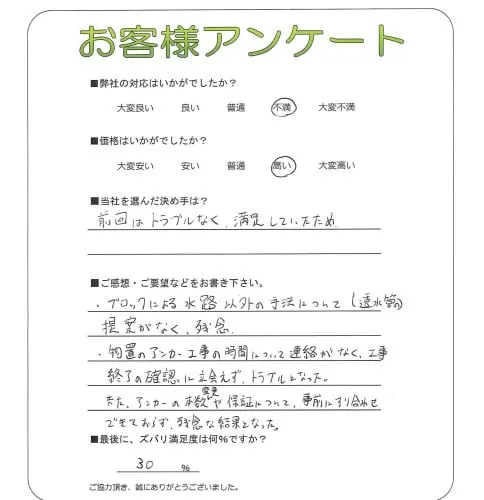 お客様アンケート
■弊社の対応はいかがでしたか？
大変良い 良い 普通 不満 大変不満
■価格はいかがでしたか？
大変安い 安い 普通 高い 大変高い
■当社を選んだ決め手は？
前回はトラブルなく、満足していたため
■ご感想・ご要望などをお書き下さい。
・ブロックによる水路以外の手法について（透水管)
提案がなく、残念.
・物置のアンカー工事の時間について連絡がなく、工事
終了の確認に立会えず、トラブルとなった。
変更
また、アンカーの本数や保証について、事前にすり合わせ
できておらず、残念な結果となった。
■最後に、ズバリ満足度は何％ですか？
30 ％
ご協力頂き、誠にありがとうございました。